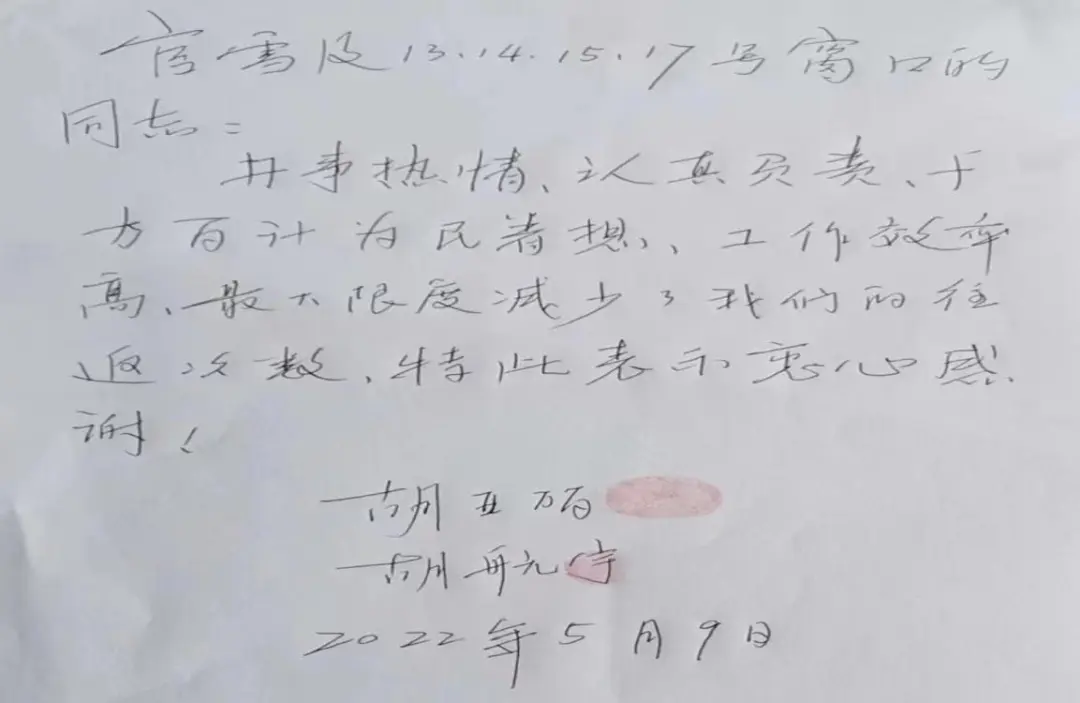 官雪及13.14.15.17号窗口的
同志:
办事热情、认真负责、千
方百计为民着想、工作效率
高、最大限度减少了我们的往
返次数,特此表示衷心感
谢!
胡亚
胡航宇
2022年5月9日